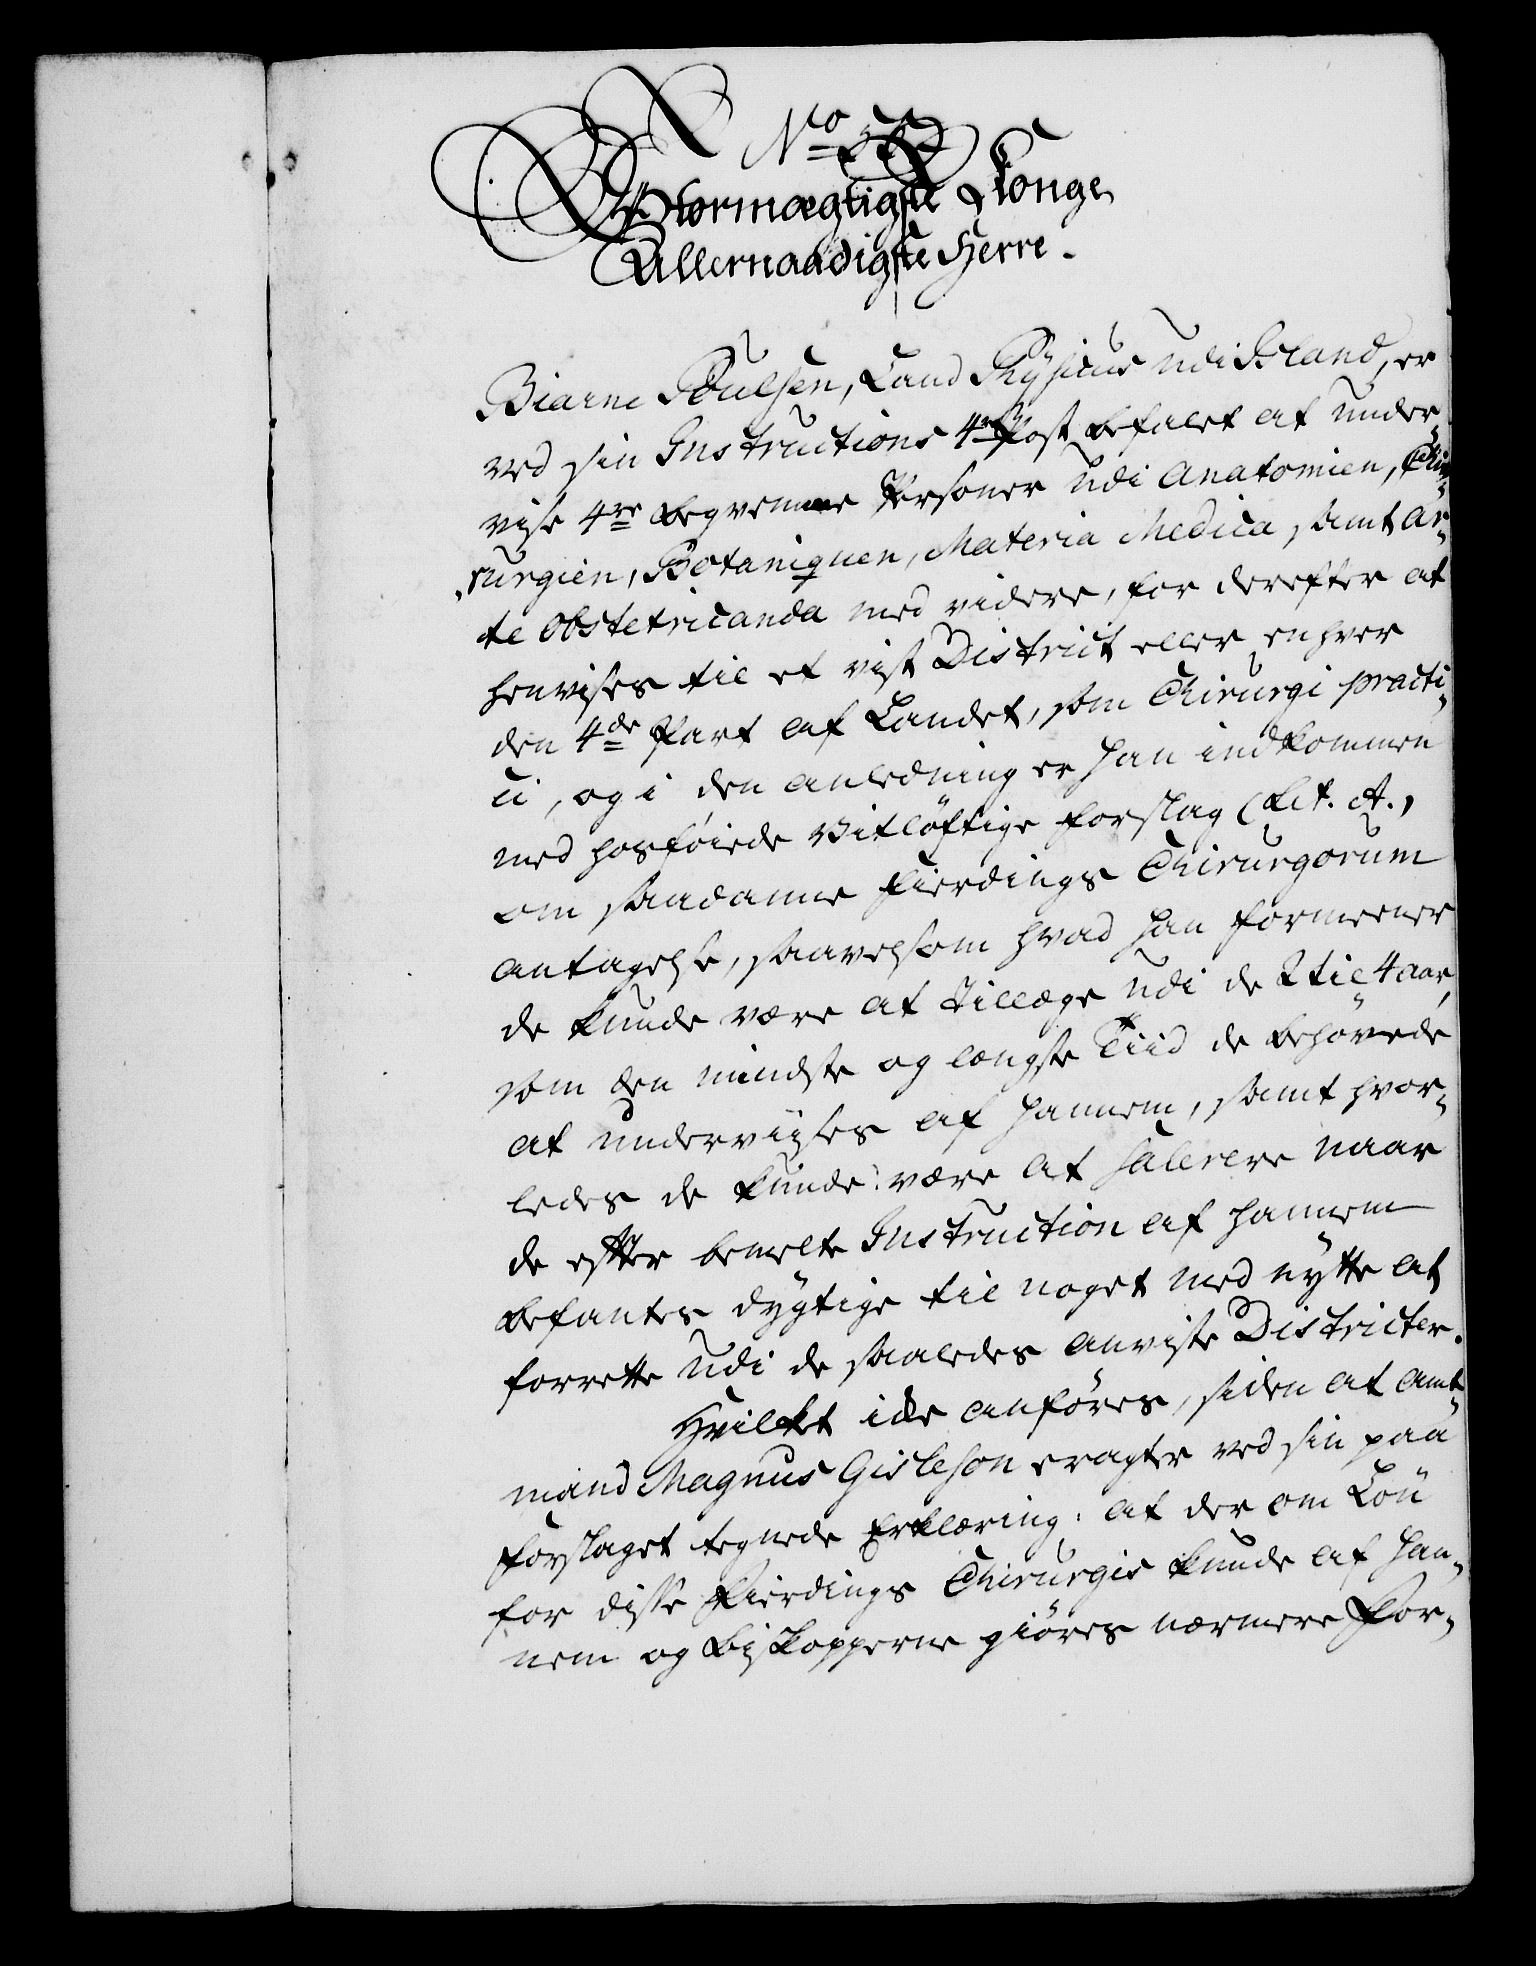 No
Stormægtigste Konge
Allernaadigste Herre.
Biarne Poulsen, Land Physicus udi Island, er
ved sin Instructions 4re Post befalet at under-
vise 4re beqvemme Personer udi Anatomien, Chi-
rurgien, Botaniquen, Materia Medica, samt Ar-
te Obstetricanda med videre, for derefter at
henvises til et vist District eller enhver
den 4de Part af Landet, som Chirurgi practi-
ci, og i den anledning er han indkommen
med hosføiede Vitløftige forslag (Lit. A.,
om saadanne Fierdings Chirurgorum
antagelse, saavelsom hvad han formeener
de kunde være at tillægge udi de 2 til 4 aar,
som den mindste og længste Tiid de behøvede
at underviises af hannem, samt hvor-
ledes de kunde være at salerere naar
de efter bemelte Instruction af hannem
befantes dygtige til noget med nytte at
forrette udi de saaledes anviste Districter.
Hvilket ide anføres, siden at Amt-
mand Magnus Gisleson eragter ved sin paa
forslaget tegnede Erklæring: at der om Løn
for disse Fierdings Chirurgis kunde af han-
nem og Biskopperne giøres nærmere For-